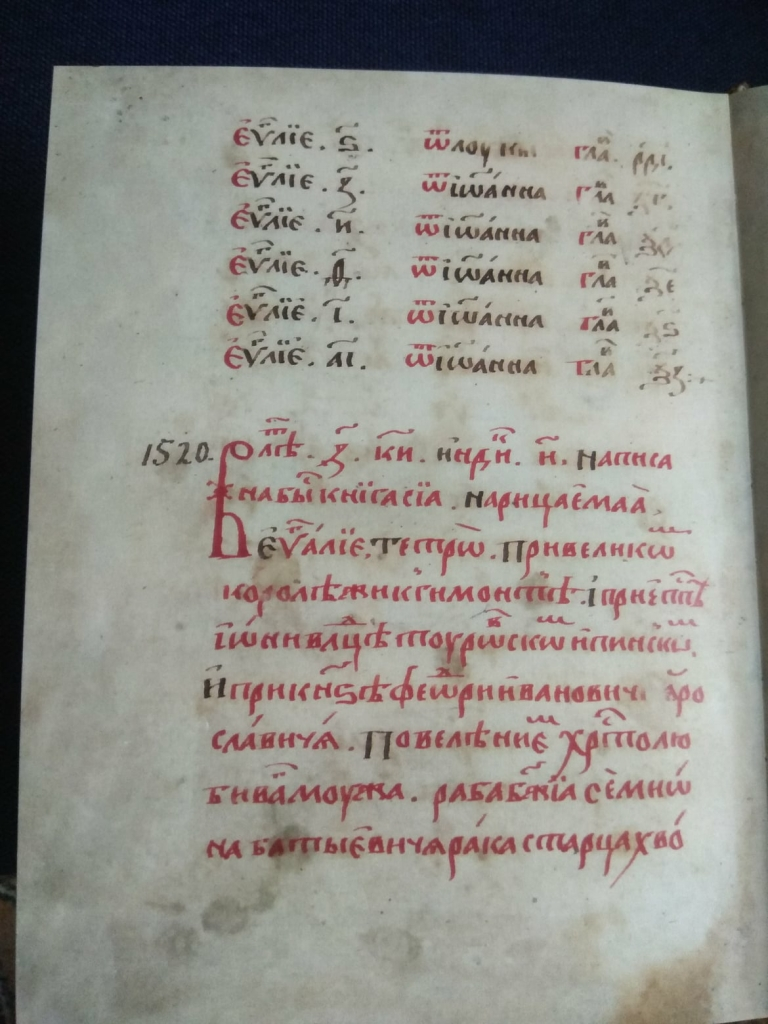 Є҆ѵⷢ҇лїе . ѕ҃ . ѿ лоукы гла
Є҆ѵⷢ҇лїе . з҃ . ѿ і҆ѡ҃а́нна глⷡ҇а
Є҆ѵⷢ҇лїе . и҃ . ѿ і҆ѡ҃а́нна глⷡ҇а
Є҆ѵⷢ҇лїе . ѳ҃ . ѿ і҆ѡ҃а́нна глⷡ҇а
Є҆ѵⷢ҇лїе . і҃ . ѿ і҆ѡ҃а́нна глⷡ҇а
Є҆ѵⷢ҇лїе . а҃і . ѿ і҆ѡ҃а́нна глⷡ҇а
1520. Влⷮѣ . з҃ . к҃и . и҆ндиⷦ҇ . и҃ . написа
на быⷭ҇ книга сїа . нарицае҆маа
еѵⷢ҇а́лїе, тетрѡ . При великѡⷨ
королѣ жикгимонтѣ . і҆ при е҆пⷭ҇пѣ
і҆ѡ́нѣ влⷣцѣ тоурѡвⷭ҇скѡⷨ и҆ пинскѡⷨ
И҆ при кн҃ѕѣ феѡⷣри и҆вановичи ꙗ҆ро
сла́вичѧ . Повелѣниеⷨ хрⷭ҇толю
биваⷢ҇ моужа . раба бж҃їа се҆миѡ́
на батыє҆вичѧ ра́ка старца хво́